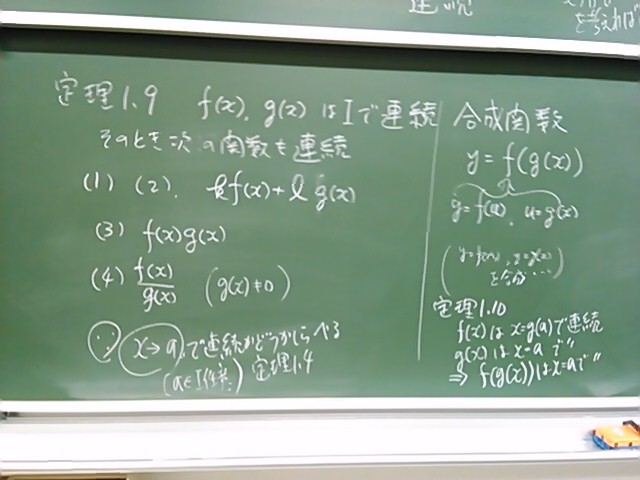 連続
を与えれば
定理1.9 f(x), g(x) はIで連続
そのとき次の関数も連続
(1) (2). kf(x)+l g(x)
(3) f(x)g(x)
(4) f(x)/g(x) (g(x)≠0)
∵ x→a で連続かどうかしらべる
(a∈I 任意) 定理1.4
合成関数
y = f(g(x))
y=f(u), u=g(x)
を合成…
定理1.10
f(x) は x=g(a)で連続
g(x) は x=a で〃
⇒ f(g(x))は x=aで〃